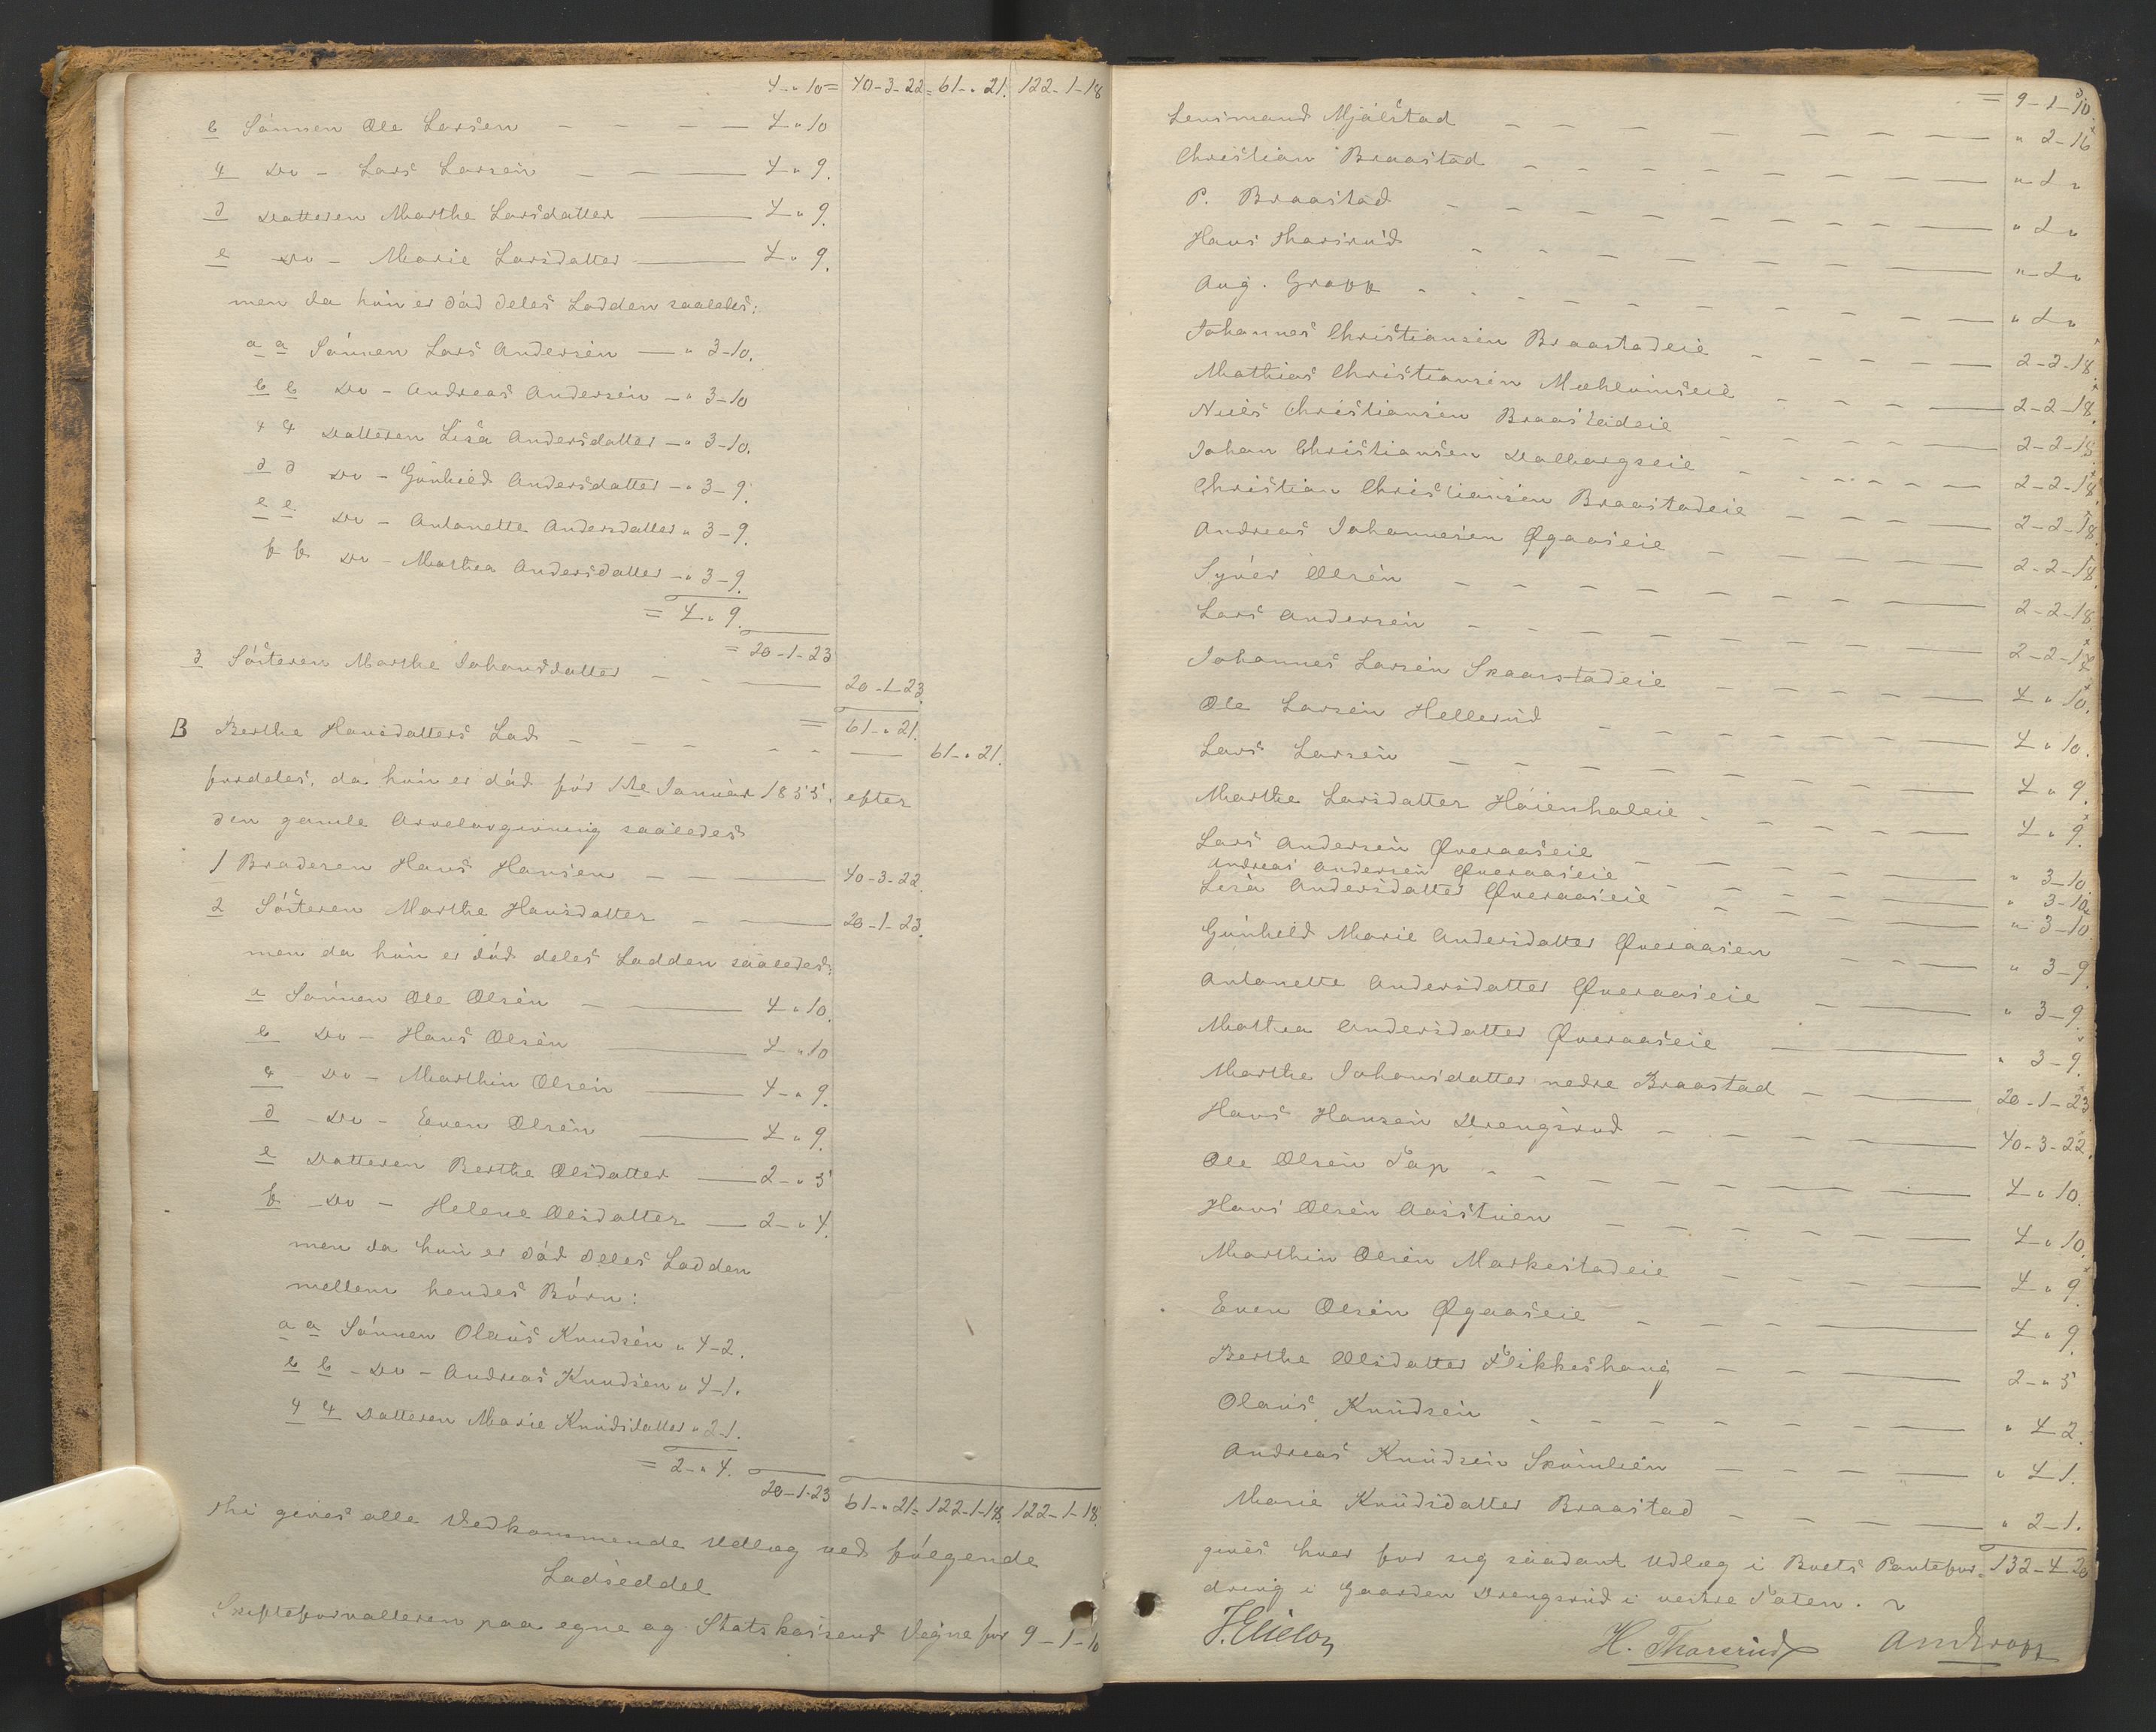 4 - " 10 = 40 - 3 - 22 = 61 - " 21. 122 - 1 - 18
b Sónnen Ole Larsen — — — — 4 " 10
c Do - Lars Larsen — — — 4 " 9.
d Datteren Marthe Larsdatter — 4 " 9.
e Do - Marie Larsdatter — 4 " 9.
men da hun er dód deles Lodden saaledes:
a a Sónnen Lars Andersen — " 3 - 10.
b b Do - Andreas Andersen — " 3 - 10
c c Datteren Lisa Andersdatter — " 3 - 10.
d d Do - Gunhild Andersdatter — " 3 - 9.
e e Do - Antonette Andersdatter " 3 - 9.
f f Do - Mathea Andersdatter — " 3 - 9.
= 4 " 9.
= 20 - 1 - 23
3 Sósteren Marthe Johansdatter — — — 20 - 1 - 23.
= 61 - " 21.
B Berthe Hansdatters Lod — — — — — 61 - " 21.
fordeles, da hun er dód fór 1ste Januar 1855, efter
den gamle Arvelovgivning saaledes
1 Broderen Hans Hansen — — — 40 - 3 - 22.
2 Sósteren Marthe Hansdatter — — 20 - 1 - 23.
men da hun er dód deles Lodden saaledes:
a Sónnen Ole Olsen — — 4 " 10.
b Do - Hans Olsen — 4 - " 10
c Do - Marthin Olsen — 4 - " 9.
d Do - Even Olsen — 4 " 9.
e Datteren Berthe Olsdatter — 2 - " 5
f Do - Helene Olsdatter — 2 - " 4.
men da hun er dód deles Lodden
mellem hendes Bórn:
a a Sónnen Olaus Knudsen " 4 - 2.
b b - Do - Andreas Knudsen " 4 - 1.
c c Datteren Marie Knudsdatter " 2 - 1.
= 2 - " 4.
20 - 1 - 23 61 - " 21 = 122 - 1 - 18. 122 - 1 - 18.
Thi gives alle Vedkommende Udlæg ved fólgende
Lodseddel
Skifteforvalteren paa egne og Statskassens Vegne for 9 - 1 - 10
= 9 - 1 - 10.
Lensmand Mjølstad — — — — " 2 - 16
Christian Braastad — — — — " 1 "
P. Braastad — — — — " 1 "
Hans Tharsrud — — — — " 1 "
Aug. Gropp — — — — " 1 "
Johannes Christiansen Braastadeie — — — 2 - 2 - 18.
Mathias Christiansen Mæhlumseie — — — 2 - 2 - 18.
Niels Christiansen Braastadeie — — — 2 - 2 - 18
Johan Christiansen Dalborgseie — — — 2 - 2 - 18.
Christian Christiansen Braastadeie — — — 2 - 2 - 18.
Andreas Johannesen Øgaaseie — — — 2 - 2 - 18.
Syver Olsen — — — — 2 - 2 - 18.
Lars Andersen — — — — 2 - 2 - 17
Johannes Larsen Skaarstadeie — — — 4 " 10.
Ole Larsen Hellerud — — — 4 " 10.
Lars Larsen — — — — 4 " 9.
Marthe Larsdatter Hóienhaleie — — — 4 " 9.
Lars Andersen Øveraaseie — — — " 3 - 10.
Andreas Andersen Øveraaseie — — — " 3 - 10.
Lisa Andersdatter Øveraaseie — — — " 3 - 10.
Gunhild Marie Andersdatter Øveraasen — — — " 3 - 9.
Antonette Andersdatter Øveraaseie — — " 3 - 9.
Mathea Andersdatter Øveraaseie — — " 3 - 9.
Marthe Johansdatter nedre Braastad — — 20 - 1 - 23
Hans Hansen Drengsrud — — — 40 - 3 - 22.
Ole Olsen Sap — — — 4 " 10.
Hans Olsen Aasstuen — — — 4 " 10.
Marthin Olsen Markestadeie — — — 4 " 9.
Even Olsen Øgaaseie — — — 4 " 9.
Berthe Olsdatter Flikkeshaug — — — 2 - " 5
Olaus Knudsen — — — " 4 - 2.
Andreas Knudsen — — — " 4 - 1.
Marie Knudsdatter Braastad — — — " 2 - 1.
gives hver for sig saadant Udlæg i Boets Pantefor- 132 - 4 - 20
dring i Gaarden Drengsrud i vestre Toten.
H. Tharsrud